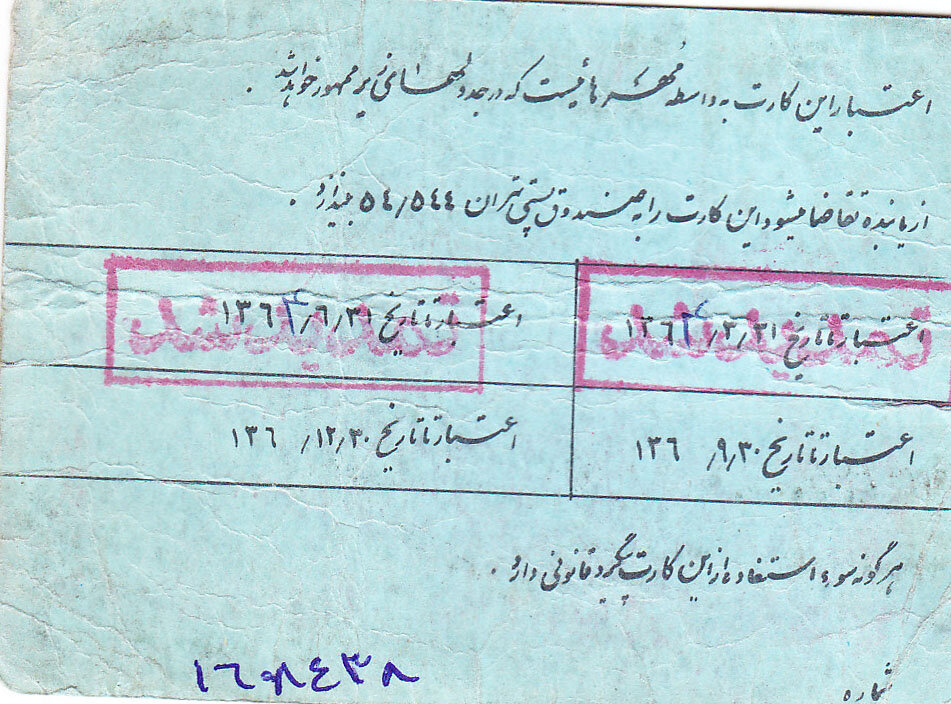 اعتبار این کارت به واسطه مهرهائیست که در جدولهای زیر ممهور خواهد شد .
از یابنده تقاضا میشود این کارت را به صندوق پستی تهران ٥٤/٥٤٤ بیندازد .
اعتبار تا تاریخ ١٣٦٤/٣/٣١
تمدید شد
اعتبار تا تاریخ ١٣٦٤/٦/٣١
تمدید شد
اعتبار تا تاریخ ١٣٦ /٩/٣٠
اعتبار تا تاریخ ١٣٦ /١٢/٣٠
هرگونه سوء استفاده از این کارت پیگرد قانونی دارد .
شماره